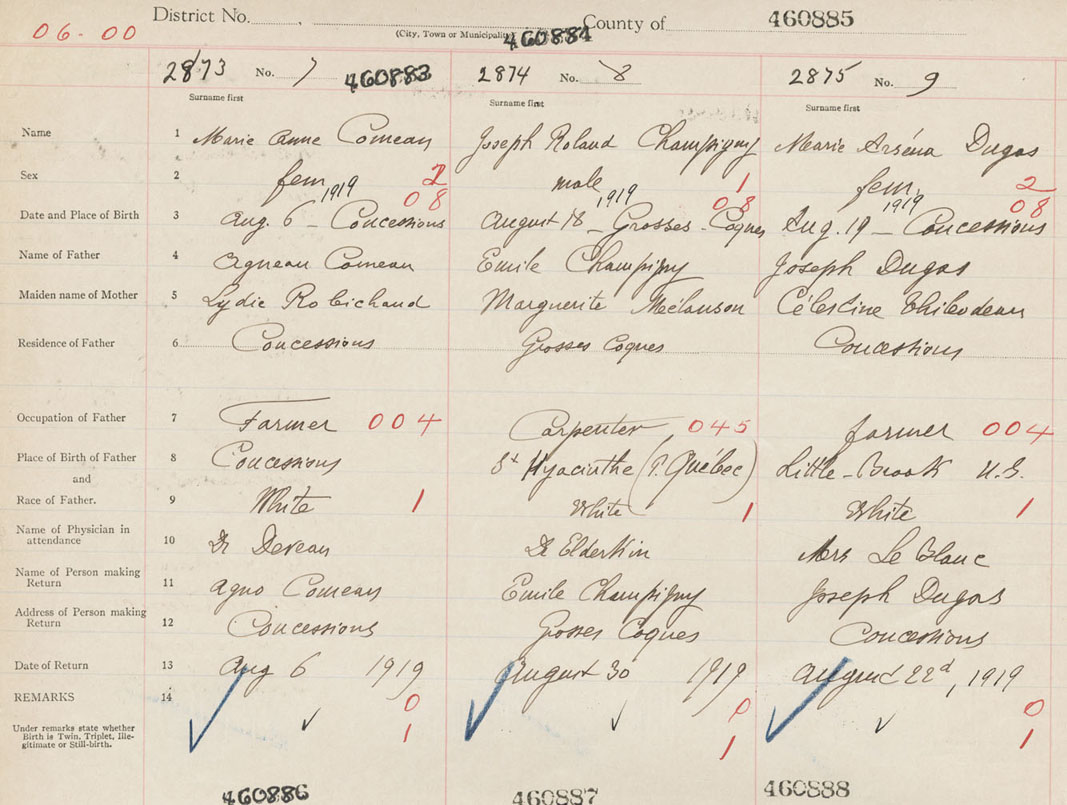 06-00 District No. , County of 460885
(City, Town or Municipality)
460884
2873 No. 7 460883 2874 No. 8 2875 No. 9
Surname first Surname first Surname first
Name 1 Marie Anne Comeau Joseph Roland Champigny Marie Arséna Dugas
Sex 2 fem 2 male 1 fem. 2
1919 08 1919 08 1919 08
Date and Place of Birth 3 Aug. 6 - Concessions August 18 - Grosses-Coques Aug. 19 - Concessions
Name of Father 4 Agneau Comeau Emile Champigny Joseph Dugas
Maiden name of Mother 5 Lydie Robichaud Marguerite Mélanson Célestine Thibodeau
Residence of Father 6 Concessions Grosses Coques Concessions
Occupation of Father 7 Farmer 004 Carpenter 045 farmer 004
Place of Birth of Father 8 Concessions St Hyacinthe (P. Québec) Little-Brook
and
Race of Father. 9 White 1 White 1 White 1
Name of Physician in
attendance 10 Dr Deveau Dr Elderkin Mrs Le Blanc
Name of Person making
Return 11 Agno Comeau Emile Champigny Joseph Dugas
Address of Person making
Return 12 Concessions Grosses Coques Concessions
Date of Return 13 Aug 6 1919 August 30 1919 August 22d, 1919
REMARKS 14 0 0 0
Under remarks state whether
Birth is Twin, Triplet, Ille-
gitimate or Still-birth. ✓ 1 ✓ 1 ✓ 1
460886 460887 460888